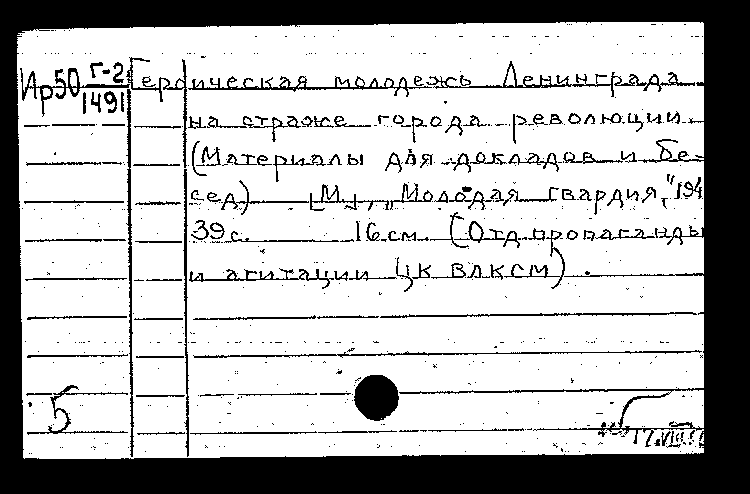 Ир50 Г-2/1491 Героическая молодежь Ленинграда
на страже города революции.
(Материалы для докладов и бе-
сед) [М.], „Молодая гвардия,"194
39 с. 16 см. (Отд. пропаганды
и агитации ЦК ВЛКСМ).
5